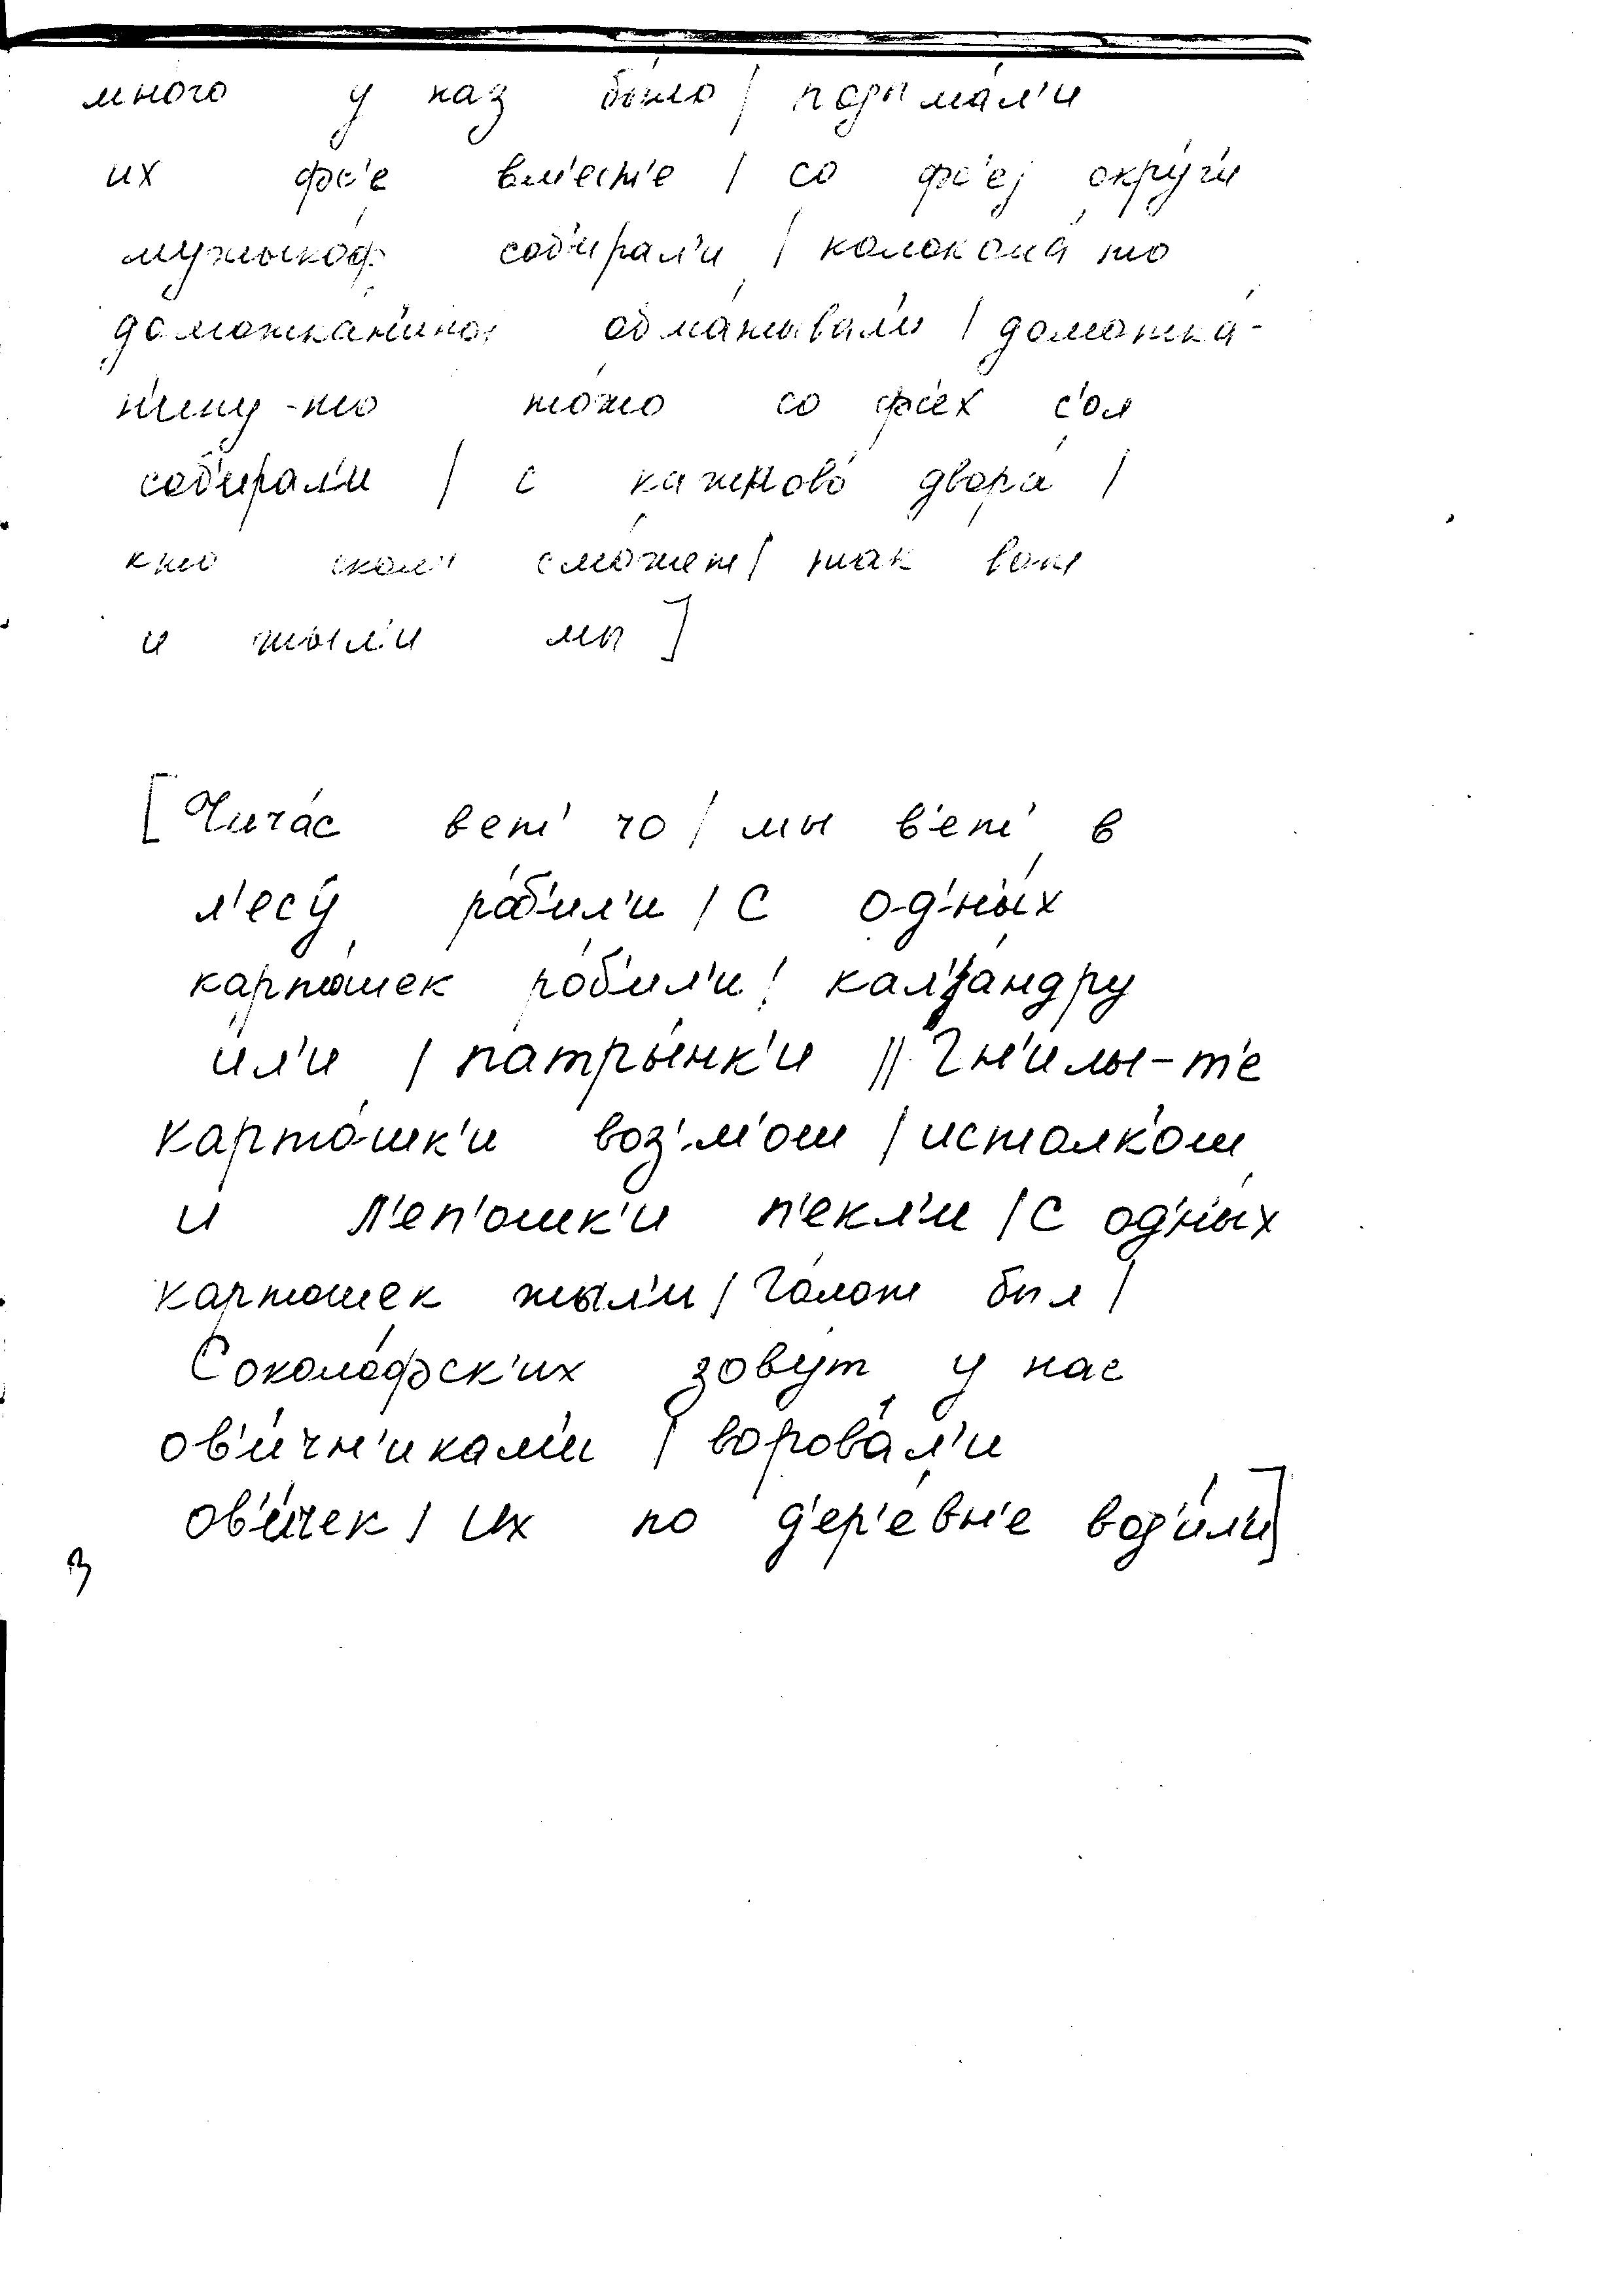 мно́го у наз бы́ло | подыма́л'и
их фс'е вм'ест'е | со фс'еј окру́г'и
мужыко́ф соб'ира́л'и | колокола́ то
домотка́н'иној обма́тывал'и | домотка́-
н'ину-то то́жо со фс'ех с'ол
соб'ира́л'и | с ка́жново двора́ |
кто скол' смо́жет | так вот
и жы́л'и мы]
[Чича́с вет' чо | мы в'ет' в
л'есу́ ро́б'ил'и | С од'ны́х
карто́шек ро́б'ил'и | кал'а́ндру
ил'и | патры́нк'и || Гн'илы́-т'е
карто́шк'и воз'м'о́ш | истолк'о́ш
и л'еп'о́шк'и п'екл'и | С од'ны́х
карто́шек жы́л'и | Го́лот был |
Соколо́фск'их зову́т у нас
ов'и́чн'икам'и | ворова́л'и
ов'и́чек | Их по д'ер'е́вн'е вод'и́л'и]